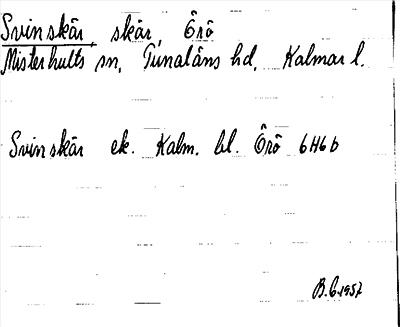 Svinskär, skär, Örö
Misterhults sn, Tunaläns hd, Kalmar l.
Svinskär ek. Kalm. bl. Örö 6H6b
B.E.1957